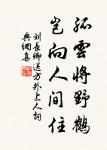 孤雲將野鶴
豈向人間住
劉長卿送方外上人詞
與緗真